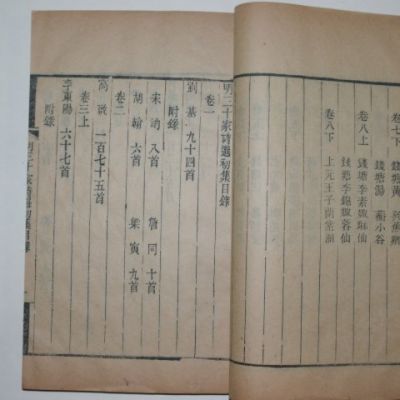 卷七下
錢塘黃
錢塘湯 小谷
卷八上
錢塘李素淑仙
錢塘李錦淑蓉仙
卷八下
上元王子蘭
明三十家詩選初集目錄
卷一
劉基 九十四首
附錄
宋訥 八首 詹同 十首
胡翰 六首 梁寅 九首
卷二
高啟 一百七十五首
卷三上
李東陽 六十七首
附錄
明三十家詩選初集目錄